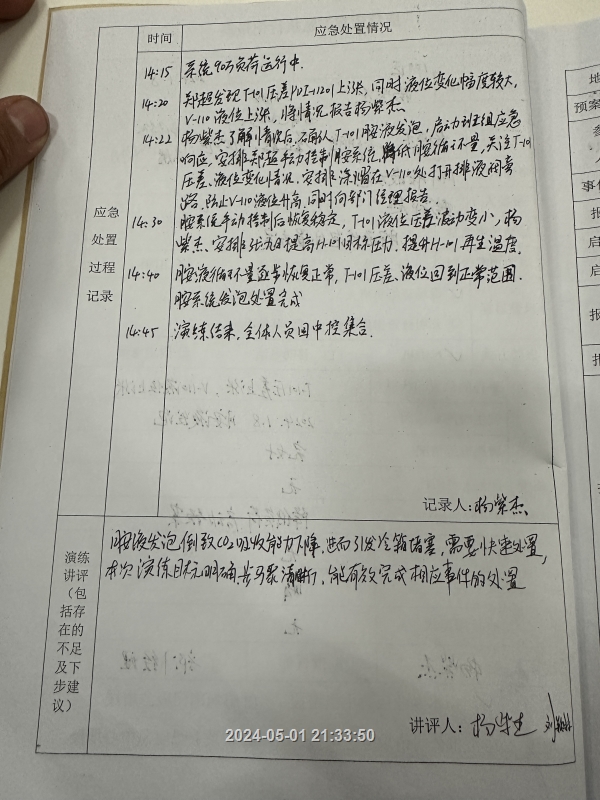 时间
应急处置情况
应急
处置
过程
记录
14:15
系统90万负荷运行中.
14:20
郑超发现T-101压差PDI-11201上涨,同时液位变化幅度较大,
V-110液位上涨,将情况报告杨紫杰.
14:22
杨紫杰了解情况后,确认T-101胺液发泡,启动班组应急
响应,安排郑超手动控制胺系统,降低胺循环量,关注T-101
压差、液位变化情况,安排涂熠在V-110处打开排液阀
防止V-110液位升高,同时向部门经理报告.
14:30
胺系统手动控制后恢复稳定,T-101液位压差波动变小,杨
紫杰安排提高H-101目标压力,提升H-101再生温度.
14:40
胺液循环量逐步恢复正常,T-101压差、液位回到正常范围.
胺系统发泡处置完成
14:45
演练结束,全体人员回中控集合.
记录人:杨紫杰
演练
讲评
(包
括存
在的
不足
及下
步建
议)
胺液发泡倒致CO2吸收能力下降,进而引发冷箱堵塞,需要快速处置,
本次演练目标明确,步骤清晰,能有效完成相应事件的处置
讲评人:
2024-05-01 21:33:50
预案
事件
报
启
启
报
报